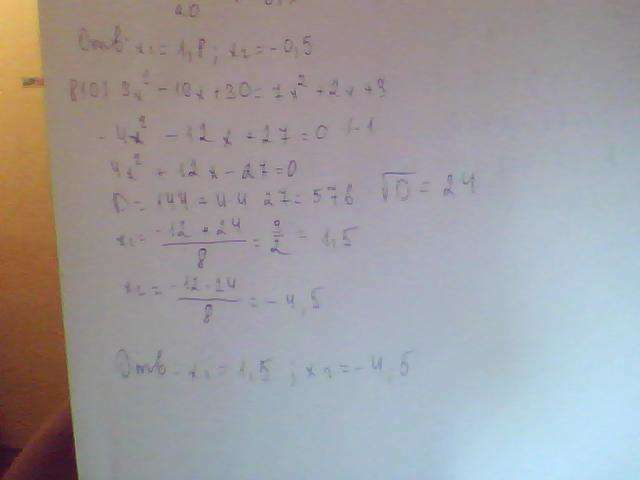 Отв - x₁ = 1,8; x₂ = -0,5
810) 3x² - 10x + 30 = 7x² + 2x + 3
-4x² - 12x + 27 = 0 |-1
4x² + 12x - 27 = 0
D = 144 + 4·4·27 = 576 √D = 24
x₁ = (-12 + 24)/8 = 3/2 = 1,5
x₂ = (-12 - 24)/8 = -4,5
Отв - x₁ = 1,5; x₂ = -4,5